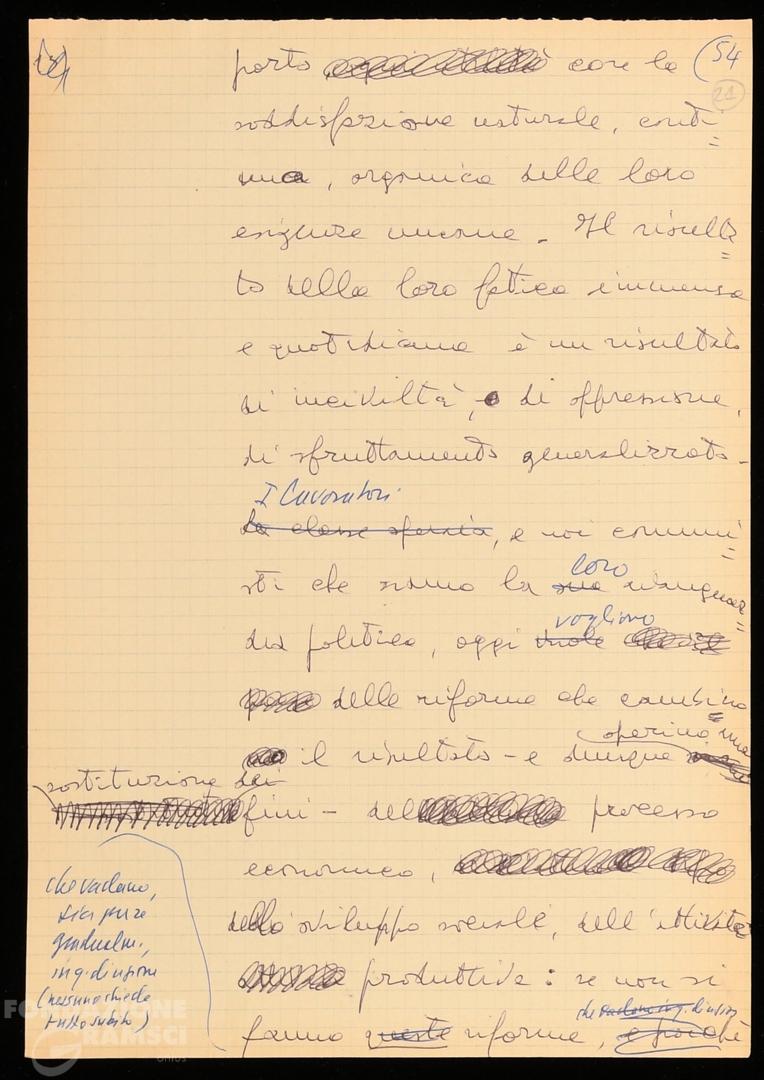 porto con la (54
21
soddisfazione naturale, conti=
nua, organica delle loro
esigenze umane. Il risulta=
to della loro fatica immensa
e quotidiana è un risultato
di inciviltà, di oppressione,
di sfruttamento generalizzato.
I lavoratori
la classe operaia, e noi comuni=
sti che siamo la sua loro avanguar=
dia politica, oggi vuole vogliono
delle riforme che cambino
il risultato - e dunque operino una
sostituzione dei
fini - del processo
economico,
dello sviluppo sociale, dell'attività
produttiva: se non si
fanno queste riforme, e poiché
che vadano in q. direzione
che vadano,
sia pure
gradualm.,
in q. direzione
(nessuno chiede
tutto subito)
FONDAZIONE
GRAMSCI
ONLUS